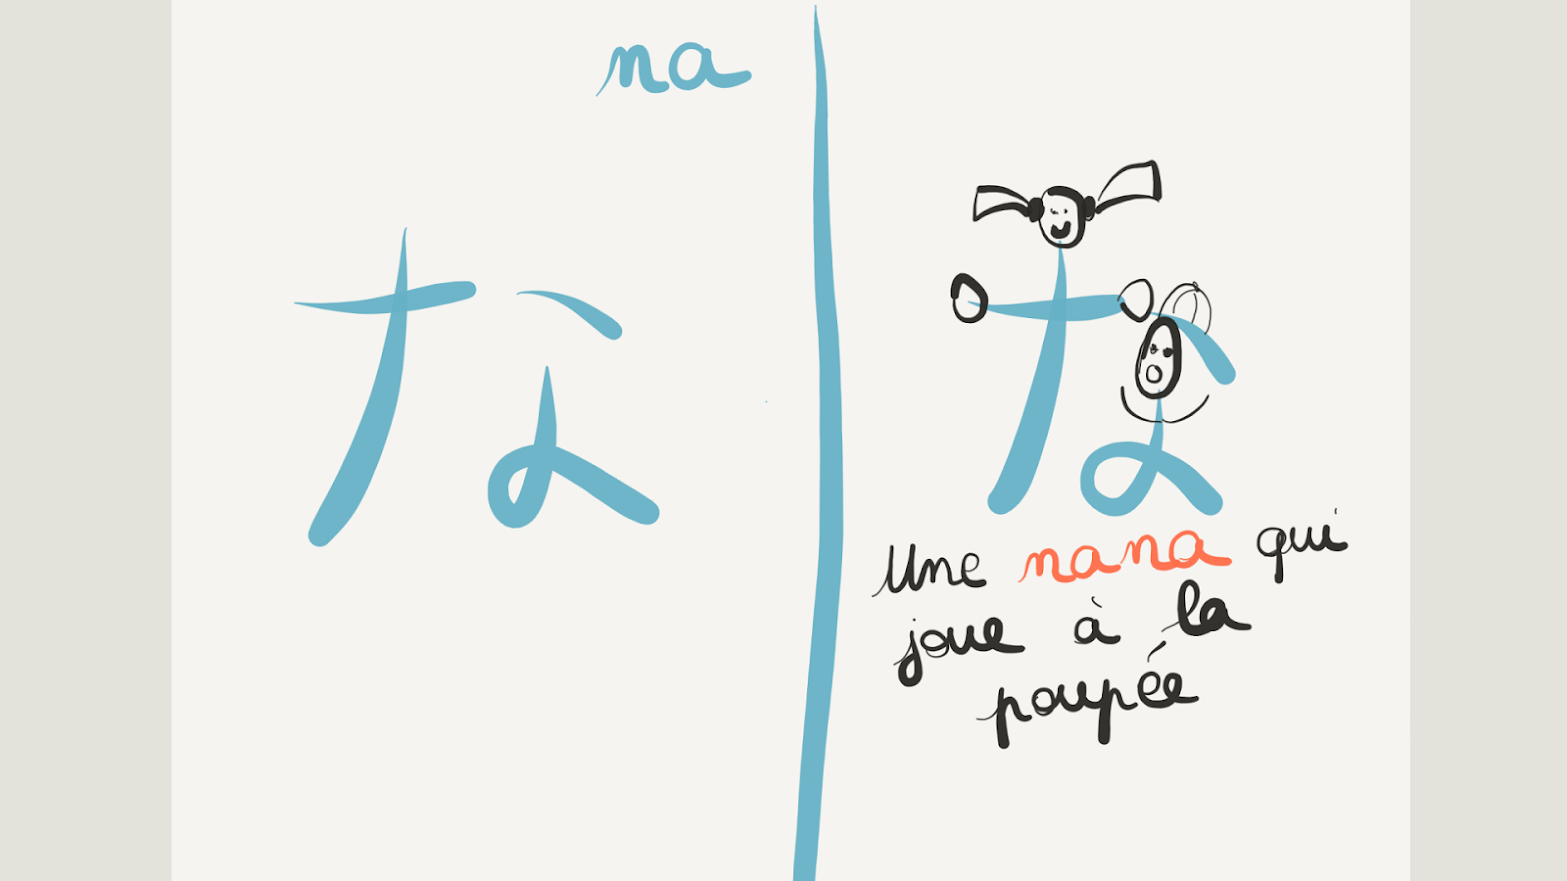 na
な
な
Une nana qui
joue à la
poupée